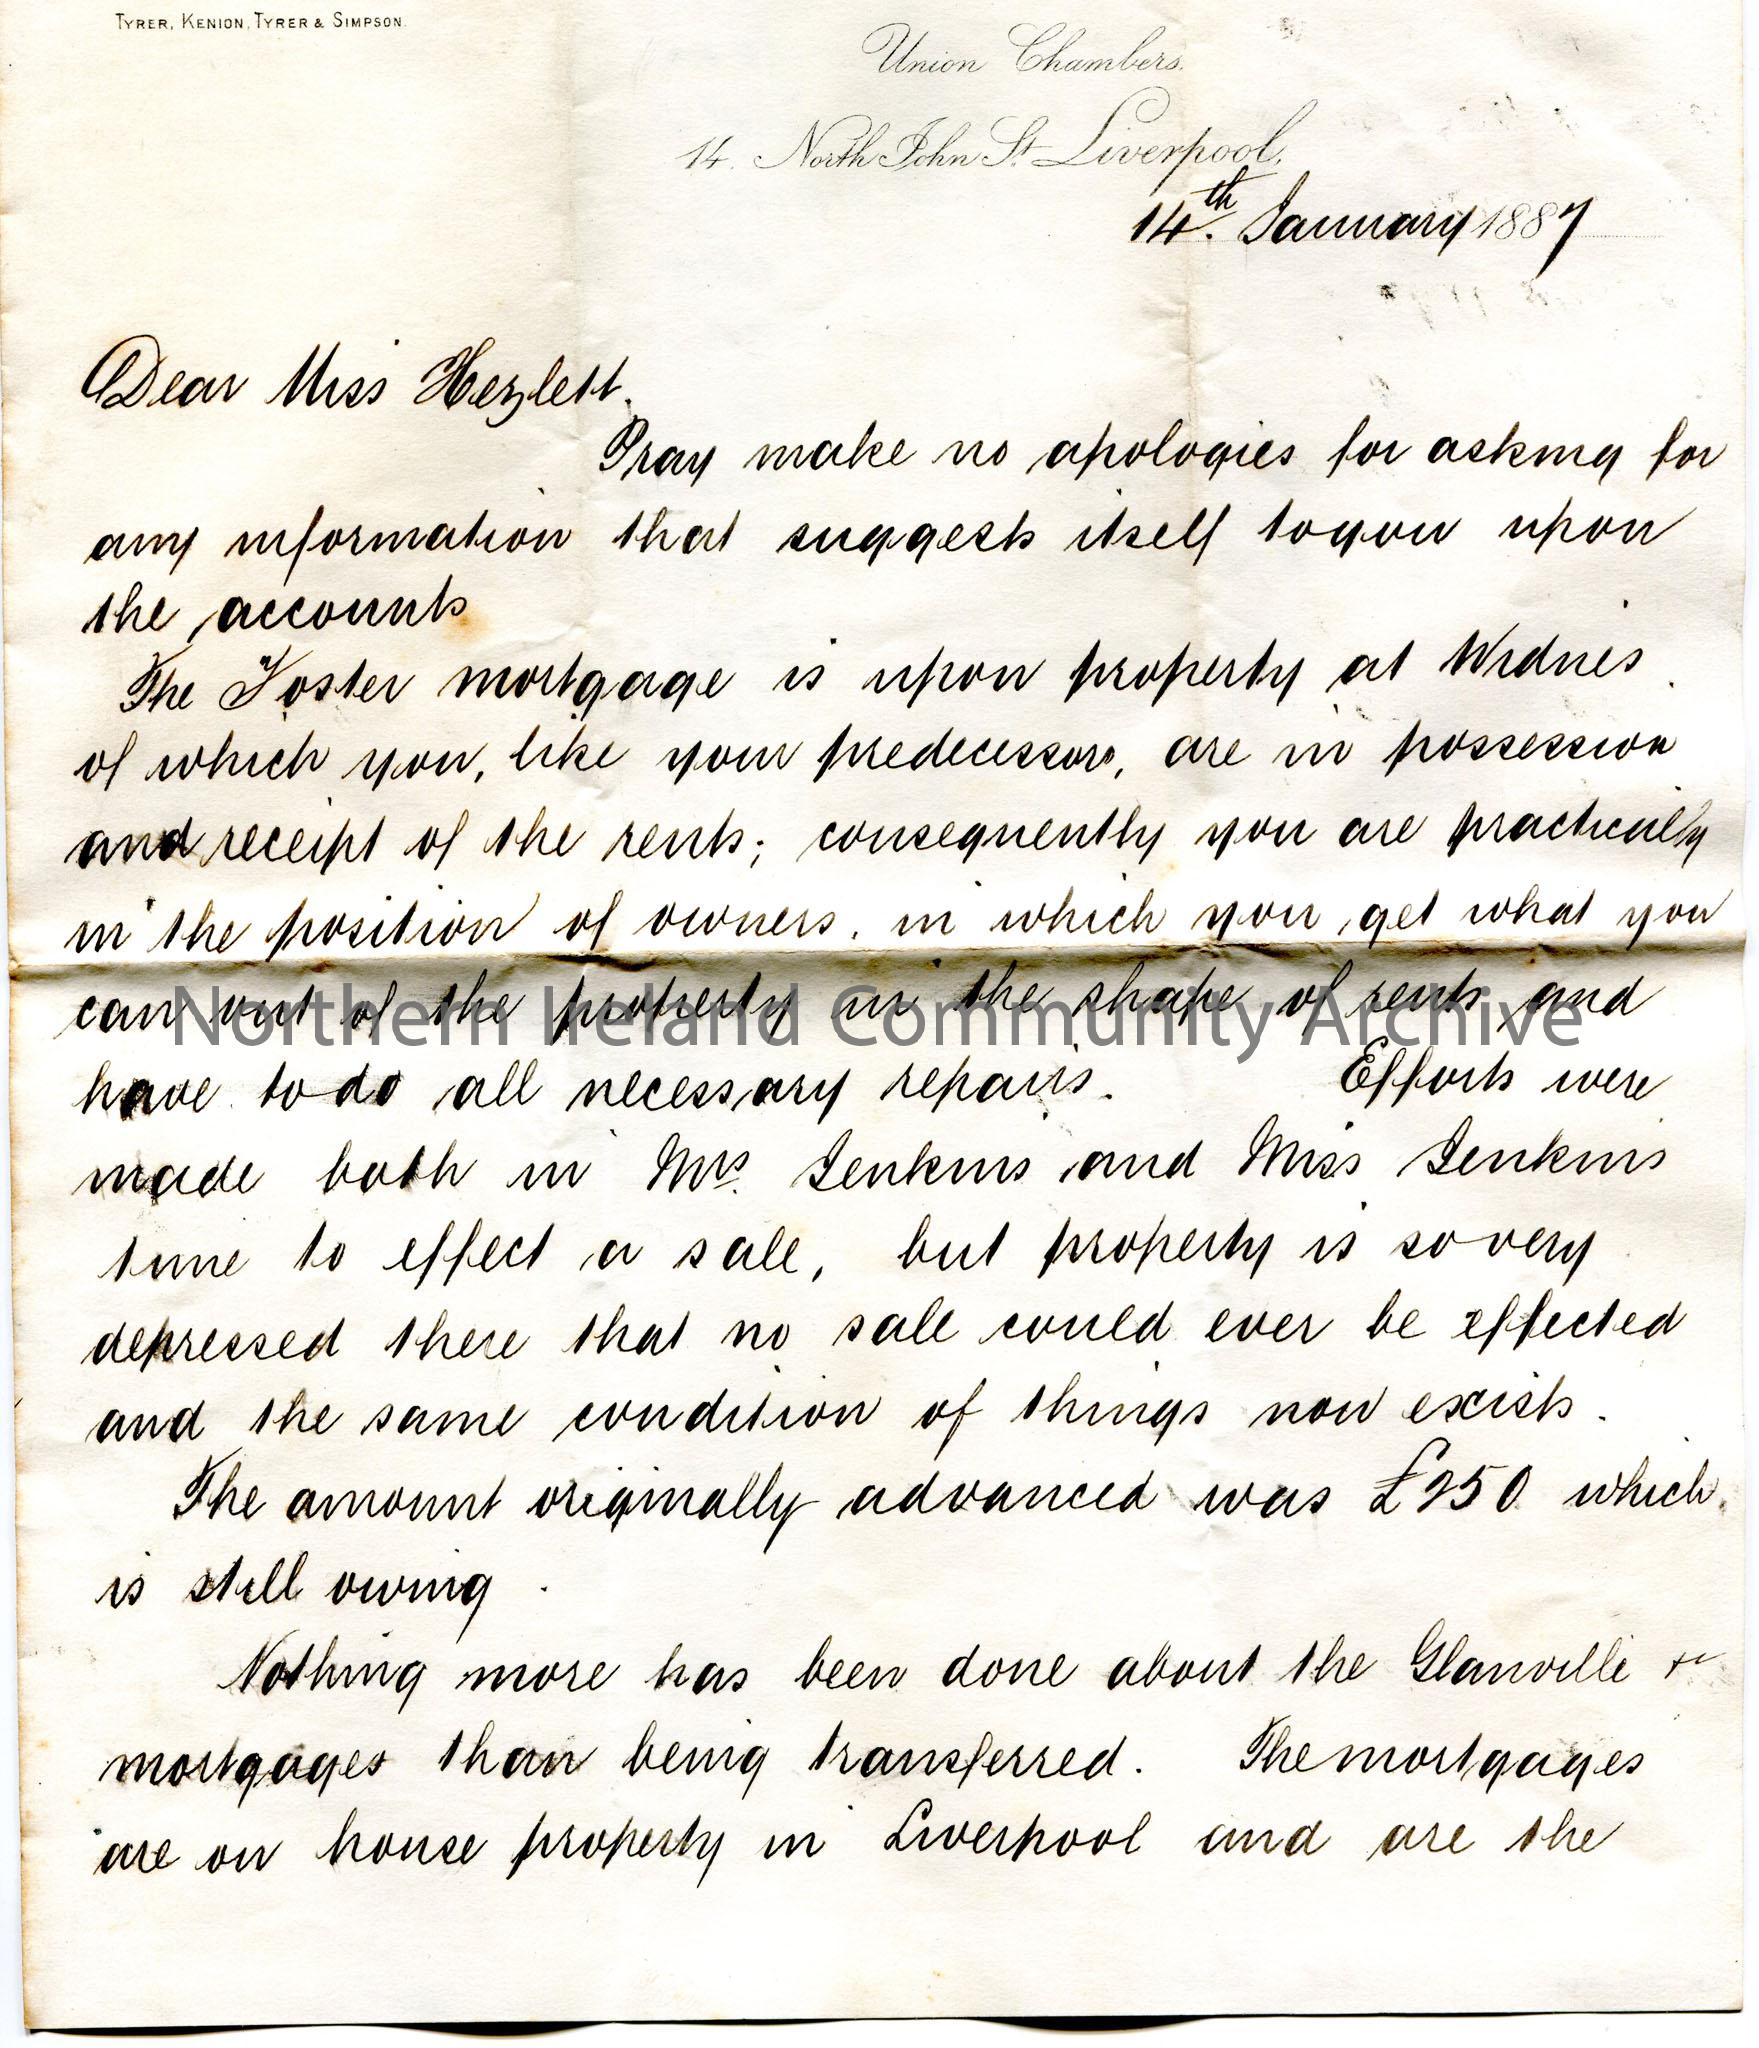 TYRER, KENION, TYRER & SIMPSON.
Union Chambers.
14. North John St. Liverpool,
14th. January 1887
Dear Miss Hezlett.
Pray make no apologies for asking for
any information that suggests itself to you upon
the accounts
The Foster mortgage is upon property at Widnes
of which you, like your predecessors, are in possession
and receipt of the rents; consequently you are practically
in the position of owners, in which you get what you
can out of the property in the shape of rents and
Northern Ireland Community Archive
have to do all necessary repairs. Efforts were
made both in Mrs. Jenkins and Miss Jenkins
time to effect a sale, but property is so very
depressed there that no sale could ever be effected
and the same condition of things now exists.
The amount originally advanced was £250 which
is still owing.
Nothing more has been done about the Glanville &c
mortgages than being transferred. The mortgages
are on house property in Liverpool and are the